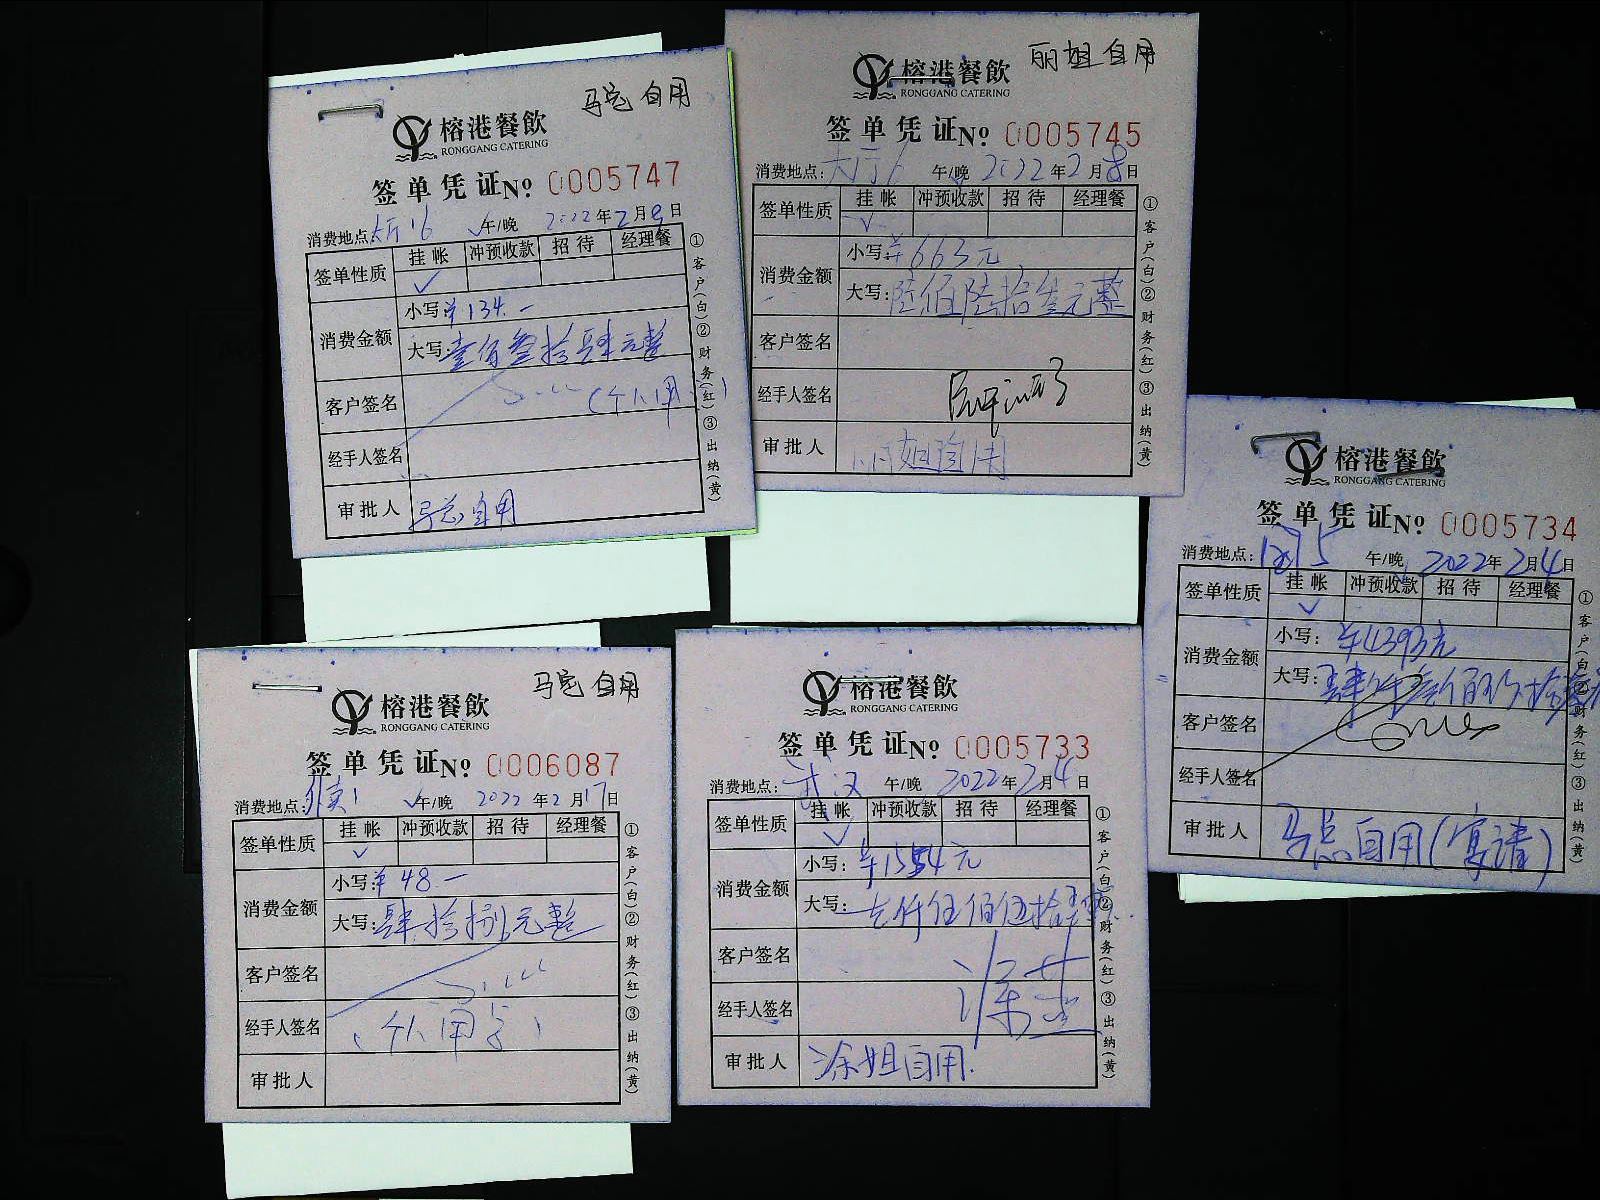 马总自用
榕港餐飲
RONGGANG CATERING
签单凭证No 0005747
消费地点: 大厅16 √午/晚 2022年2月9日
签单性质 挂帐 冲预收款 招待 经理餐
√
消费金额 小写: ¥134.一
大写: 壹佰叁拾肆元整
客户签名 (个人用)
经手人签名
审批人 马总自用
①客户(白)②财务(红)③出纳(黄)
丽姐自用
榕港餐飲
RONGGANG CATERING
签单凭证No 0005745
消费地点: 大厅6 午/晚 2022年2月8日
签单性质 挂帐 冲预收款 招待 经理餐
√
消费金额 小写: ¥663元
大写: 陆佰陆拾叁元整
客户签名
经手人签名
审批人 丽姐自用
①客户(白)②财务(红)③出纳(黄)
榕港餐飲
RONGGANG CATERING
签单凭证No 0005734
消费地点: 午/晚 2022年2月4日
签单性质 挂帐 冲预收款 招待 经理餐
√
消费金额 小写: ¥4393元
大写: 肆仟叁佰玖拾叁元
客户签名
经手人签名
审批人 马总自用(宴请)
①客户(白)②财务(红)③出纳(黄)
马总自用
榕港餐飲
RONGGANG CATERING
签单凭证No 0006087
消费地点: √午/晚 2022年2月17日
签单性质 挂帐 冲预收款 招待 经理餐
√
消费金额 小写: ¥48.一
大写: 肆拾捌元整
客户签名
经手人签名 (个人用餐)
审批人
①客户(白)②财务(红)③出纳(黄)
榕港餐飲
RONGGANG CATERING
签单凭证No 0005733
消费地点: 武汉 午/晚 2022年2月4日
签单性质 挂帐 冲预收款 招待 经理餐
√
消费金额 小写: ¥1554元
大写: 仟伍佰伍拾肆
客户签名 涂
经手人签名
审批人 涂姐自用.
①客户(白)②财务(红)③出纳(黄)